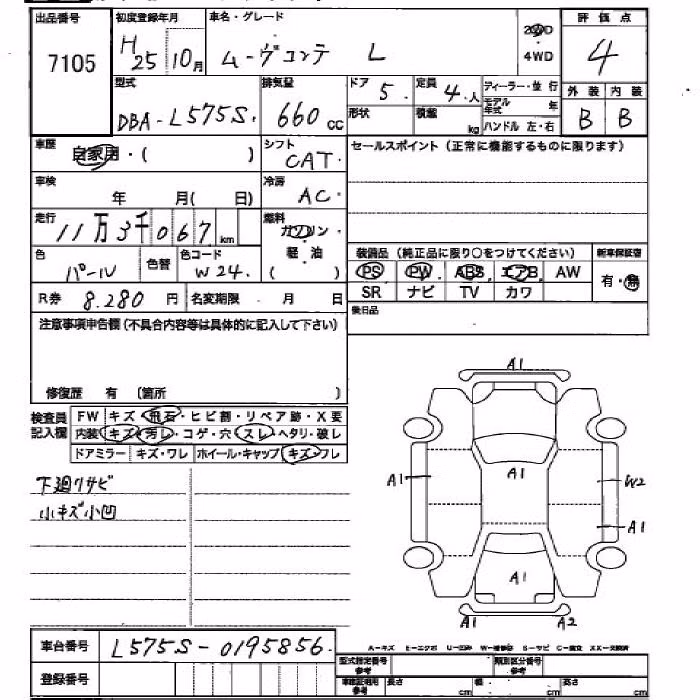 出品番号 初度登録年月 車名・グレード 評価点
7105 H25 10月 ムーヴコンテ L 2WD 4WD 4
型式 排気量 ドア 定員 ディーラー・並行 外装 内装
DBA-L575S 660cc 5 4人 モデル年式 年 B B
形状 積載 kg ハンドル 左・右
車歴 自家用・( ) シフト CAT セールスポイント(正常に機能するものに限ります)
車検 年 月( 日) 冷房 AC
走行 11万3千067km 燃料 ガソリン・軽油 ( )
色 パール 色替 色コード W24.
装備品(純正品に限り○をつけてください) 新車保証書
PS PW ABS エアB AW 有・無
SR ナビ TV カワ
R券 8.280円 名変期限 月 日
後日品
注意事項申告欄(不具合内容等は具体的に記入して下さい)
修復歴 有 〔箇所 〕
検査員記入欄 FW キズ・飛石・ヒビ割・リペア跡・X要
内装 キズ・汚レ・コゲ・穴・スレ・ヘタリ・破レ
ドアミラー キズ・ワレ ホイール・キャップ キズ・フレ
下廻りサビ
小キズ小凹
A1
A1 A1 W2
A1
A1
A1 A2
車台番号 L575S-0195856.
登録番号
A-キズ E-エクボ U-凹み W-補修跡 S-サビ C-腐食 XX-交換済
型式指定番号 参考 類別区分番号 参考
車庫証明用 参考 長さ cm 幅 cm 高さ cm